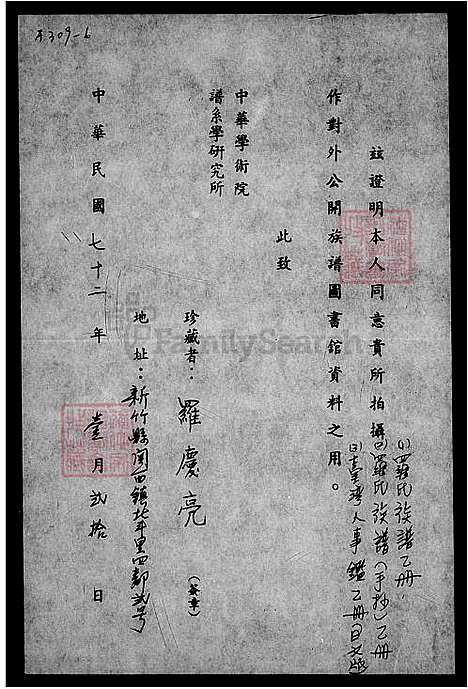 A309-6
茲證明本人同意貴所拍攝
(1)羅氏族譜乙册.
(2)羅氏族譜(手抄)乙册
(3)臺灣人事鑑乙册日文版
作對外公開族譜圖書館資料之用。
此致
中華學術院
譜系學研究所
珍藏者：羅慶亮(簽章)
地址：新竹縣關西鎮北斗里四鄰貳号
中華民國七十二年壹月貳拾日
FamilySearch